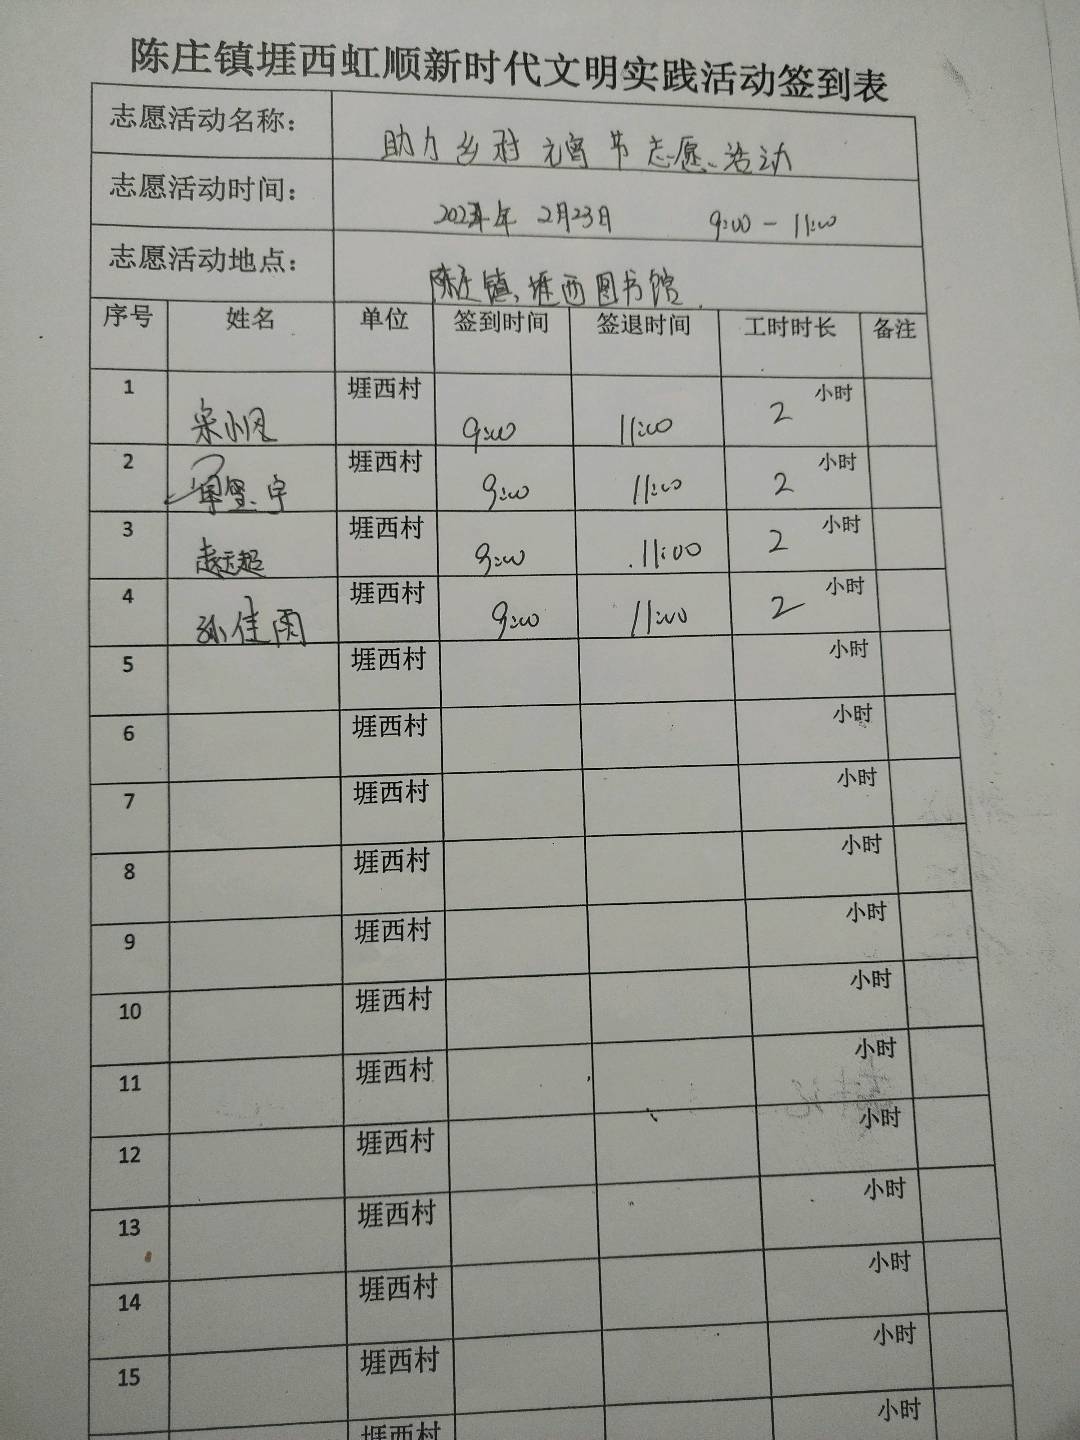 陈庄镇堐西虹顺新时代文明实践活动签到表
志愿活动名称： 助力乡村元宵节志愿活动
志愿活动时间： 年 2月23日 9:00 - 11:00
志愿活动地点： 陈庄镇、堐西图书馆
序号 姓名 单位 签到时间 签退时间 工时时长 备注
1 宋小 堐西村 9:00 11:00 2 小时
2 堐西村 9:00 11:00 2 小时
3 赵天超 堐西村 9:00 11:00 2 小时
4 孙佳雨 堐西村 9:00 11:00 2 小时
5 堐西村 小时
6 堐西村 小时
7 堐西村 小时
8 堐西村 小时
9 堐西村 小时
10 堐西村 小时
11 堐西村 小时
12 堐西村 小时
13 堐西村 小时
14 堐西村 小时
15 堐西村 小时
堐西村 小时